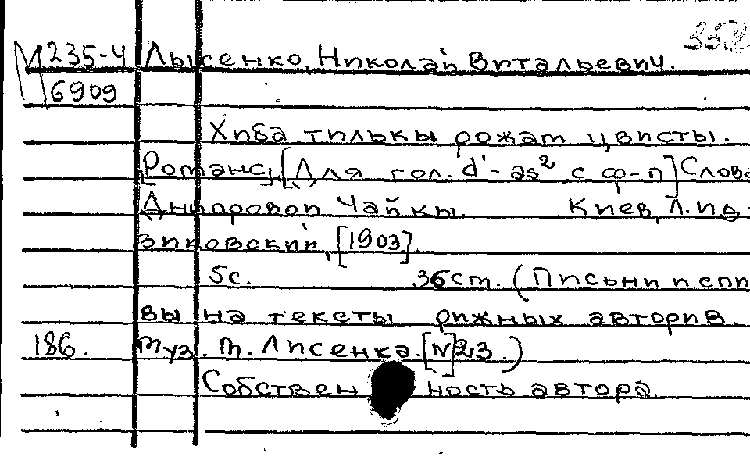 358
М 235-4 Лысенко, Николай Витальевич.
6909
Хиба тилькы рожам цвисты.
[Романс], [Для гол. d'-as² с ф-п] Слова
Днипровои Чайкы. Киев, Л. Ид-
зиковский, [1903].
5с. 36 cm. (Писни и спи
вы на тексты рижных авторив
186. муз. М. Лисенка. [№] 23.)
Собственность автора.